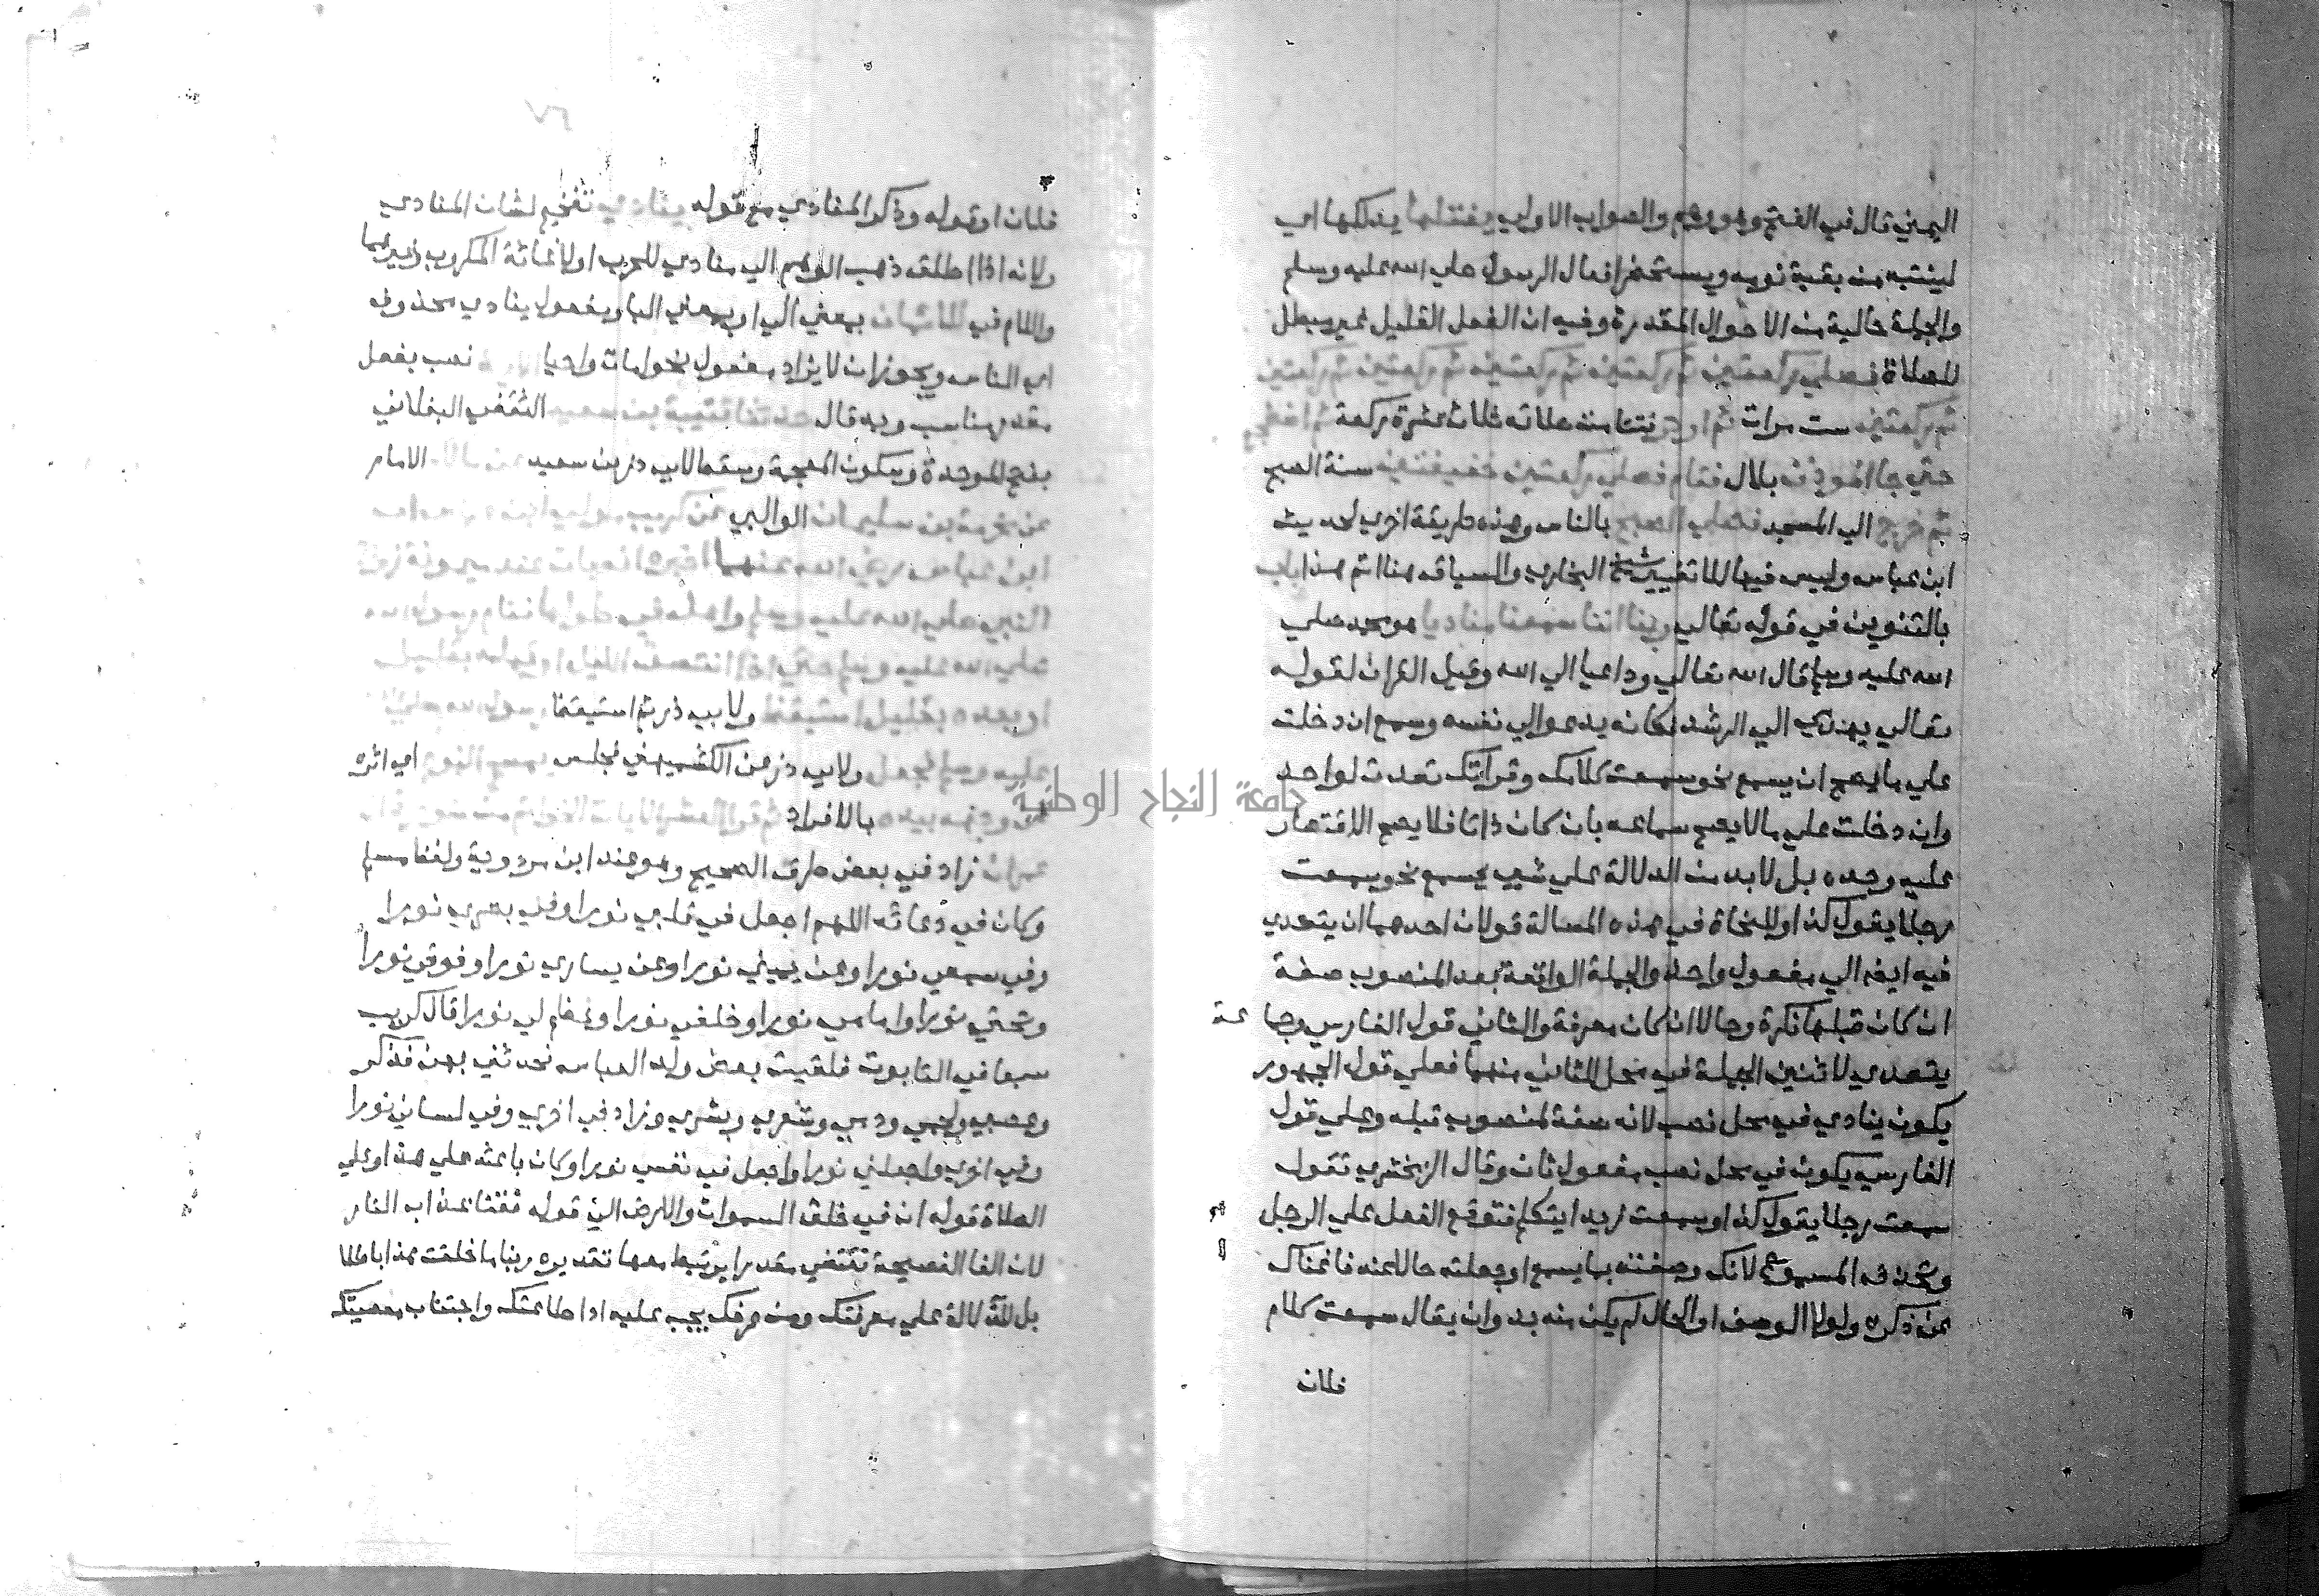 اليمني قال في الفتح وهو وهم والصواب الاولي يفتلها يدلكها اي
لينتبه من بقية نومه ويستحضر افعال الرسول صلي الله عليه وسلم
والجملة حالية من الاحوال المقدرة وفيه ان الفعل القليل غير مبطل
للصلاة فصلي ركعتين ثم ركعتين ثم ركعتين ثم ركعتين ثم ركعتين
ثم ركعتين ست مرات ثم اوتر فتتامت صلاته ثلاث عشرة ركعة ثم اضطجع
حتي جا الموذن بلال فقام فصلي ركعتين خفيفتين سنة الصبح
ثم خرج الي المسجد فصلي الصبح بالناس وهذه طريقة اخري لحديث
ابن عباس وليس فيها الا تغيير شيخ البخاري والسياق هنا اتم هذا باب
بالتنوين في قوله تعالي ربنا اننا سمعنا مناديا هو محمد صلي
الله عليه وسلم قال الله تعالي وداعيا الي الله وقيل القران لقوله
تعالي يهدي الي الرشد فكانه يدعوا الي نفسه وسمع ان دخلت
علي ما يصح ان يسمع نحو سمعت كلامك وقراتك تعدت لواحد
وان دخلت علي مالا يصح سماعه بان كان ذاتا فلا يصح الاقتصار
عليه وحده بل لا بد من الدلالة علي شي يسمع نحو سمعت
رجلا يقول كذا وللنحاة في هذه المسالة قولان احدهما ان يتعدي
فيه ايضا الي مفعول واحد والجملة الواقعة بعد المنصوب صفة
ان كان قبلها نكرة وحالا ان كان معرفة والثاني قول الفارسي وجماعة
يتعدي لاثنين الجملة في محل الثاني منهما فعلي قول الجمهور
يكون ينادي في محل نصب لانه صفة لمنصوب قبله وعلي قول
الفارسي يكون في محل نصب مفعول ثان وقال الزمخشري تقول
سمعت رجلا يقول كذا وسمعت زيدا يتكلم فتوقع الفعل علي الرجل
وتحذف المسموع لانك وصفته بما يسمع او جعلته حالا عنه فاغناك
عن ذكره ولولا الوصف او الحال لم يكن منه بد وان يقال سمعت كلام
فلان
فلان او قوله وذكر المنادي مع قوله ينادي تفخيم لشان المنادي
ولانه اذا اطلق ذهب الوهم الي مناد للحرب او لاغاثة المكروب وغيرهما
واللام في للايمان بمعني الي او بمعني البا ومفعول ينادي محذوف
اي الناس ويجوز ان لا يراد مفعول نحو امات واحيا نصب بفعل
مقدر مناسب وبه قال حدثنا قتيبة بن سعيد الثقفي البغلاني
بفتح الموحدة وسكون المعجمة وسقط لابي ذر بن سعيد الامام
عن مخرمة بن سليمان الوالبي عن كريب
ابن عباس رضي الله عنهما اخبره انه بات عند ميمونة زوج
النبي صلي الله عليه وسلم
صلي الله عليه وسلم حتي اذا انتصف الليل او قبله بقليل
او بعده بقليل استيقظ ولابي ذر ثم استيقظ
عليه وسلم فجعل ولابي ذر عن الكشميهني فجلس اي اثره
عن وجهه بيده بالافراد
عمران زاد في بعض طرق الصحيح وهو عند ابن مردوية ولفظ مسلم
وكان في دعائه اللهم اجعل في قلبي نورا وفي بصري نورا
وفي سمعي نورا وعن يميني نورا وعن يساري نورا وفوقي نورا
وتحتي نورا وامامي نورا وخلفي نورا وعظم لي نورا قال كريب
سبعا في التابوت فلقيت بعض ولد العباس فحدثني بهن فذكر
وعصبي ولحمي ودمي وشعري وبشري وزاد في اخري وفي لساني نورا
وفي اخري واجعلني نورا واجعل في نفسي نورا وكان باعثه علي هذا وعلي
الصلاة قوله ان في خلق السموات والارض الي قوله فقنا عذاب النار
لان الفا الفصيحة تقتضي مقدرا يرتبط معها تقديره ربنا ما خلقت هذا باطلا
بل للدلالة علي معرفتك ومن عرفك يجب عليه ادا طاعتك واجتناب معصيتك
جامعة النجاح الوطنية